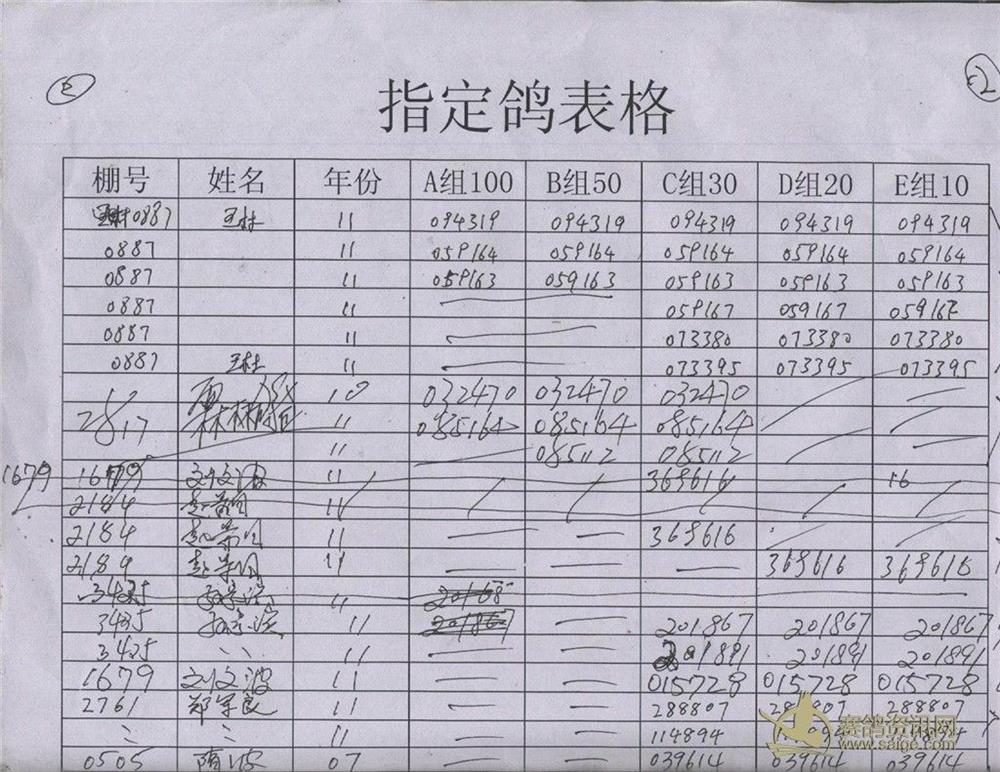 指定鸽表格
棚号 姓名 年份 A组100 B组50 C组30 D组20 E组10
0887 王杜 11 094319 094319 094319 094319 094319
0887 11 059164 059164 059164 059164 059164
0887 11 059163 059163 059163 059163 059163
0887 11 059167 059167 059167
0887 11 073380 073380 073380
0887 王杜 11 073395 073395 073395
10 032470 032470 032470
2817 11 085164 085164 085164
11 085112 085112
1679 1679 刘文波 11 369616 16
2184 11
2184 11 369616
2189 11 369616 369616
3425 11 20168
3425 11 201867 201867 201867 201867
3425 11 201891 201891 201891
1679 刘文波 11 015728 015728 015728
2761 郑学良 11 288807 288807 288807
11 114894
0505 隋波 07 039614 039614 039614
赛鸽资讯网
www.saige.com